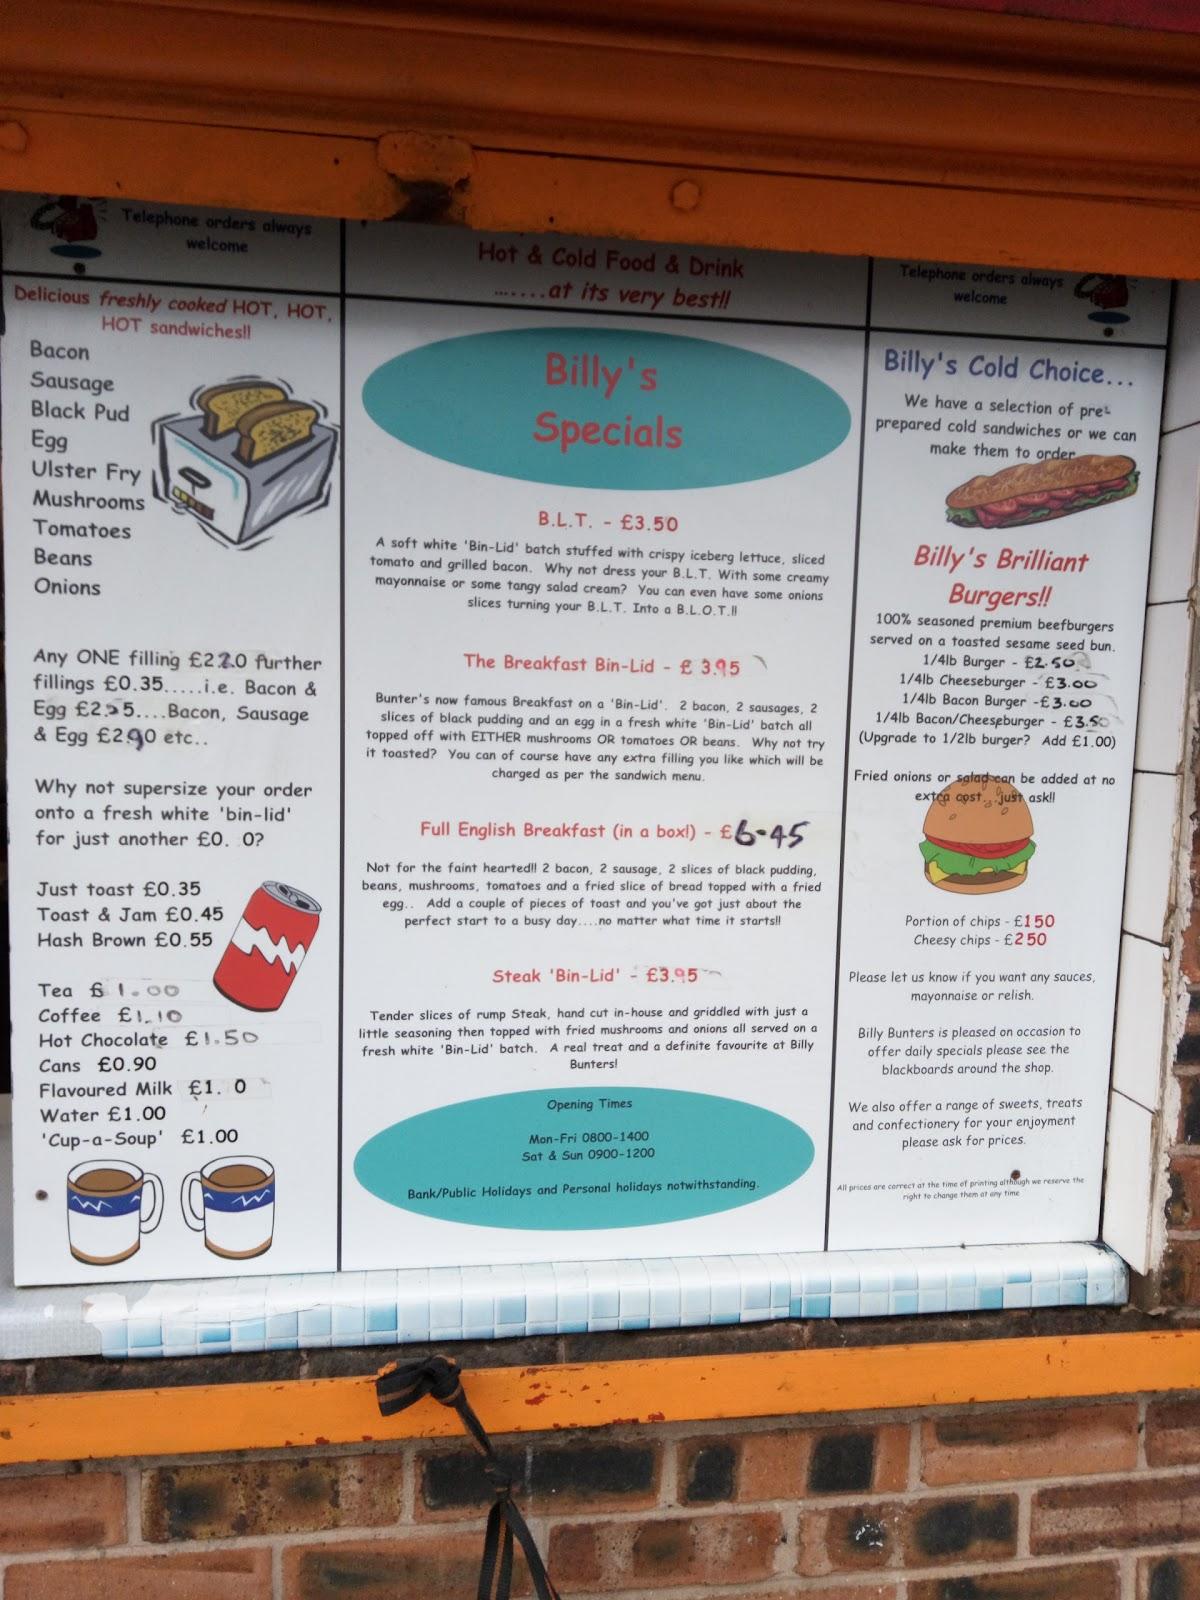 Telephone orders always
welcome
Delicious freshly cooked HOT, HOT,
HOT sandwiches!!
Bacon
Sausage
Black Pud
Egg
Ulster Fry
Mushrooms
Tomatoes
Beans
Onions
Any ONE filling £2.20 further
fillings £0.35.....i.e. Bacon &
Egg £2.55....Bacon, Sausage
& Egg £2.90 etc..
Why not supersize your order
onto a fresh white 'bin-lid'
for just another £0. 0?
Just toast £0.35
Toast & Jam £0.45
Hash Brown £0.55
Tea £1.00
Coffee £1.10
Hot Chocolate £1.50
Cans £0.90
Flavoured Milk £1. 0
Water £1.00
'Cup-a-Soup' £1.00
Hot & Cold Food & Drink
.......at its very best!!
Billy's
Specials
B.L.T. - £3.50
A soft white 'Bin-Lid' batch stuffed with crispy iceberg lettuce, sliced
tomato and grilled bacon. Why not dress your B.L.T. With some creamy
mayonnaise or some tangy salad cream? You can even have some onions
slices turning your B.L.T. Into a B.L.O.T.!!
The Breakfast Bin-Lid - £ 3.95
Bunter's now famous Breakfast on a 'Bin-Lid'. 2 bacon, 2 sausages, 2
slices of black pudding and an egg in a fresh white 'Bin-Lid' batch all
topped off with EITHER mushrooms OR tomatoes OR beans. Why not try
it toasted? You can of course have any extra filling you like which will be
charged as per the sandwich menu.
Full English Breakfast (in a box!) - £6-45
Not for the faint hearted!! 2 bacon, 2 sausage, 2 slices of black pudding,
beans, mushrooms, tomatoes and a fried slice of bread topped with a fried
egg.. Add a couple of pieces of toast and you've got just about the
perfect start to a busy day....no matter what time it starts!!
Steak 'Bin-Lid' - £3.95
Tender slices of rump Steak, hand cut in-house and griddled with just a
little seasoning then topped with fried mushrooms and onions all served on a
fresh white 'Bin-Lid' batch. A real treat and a definite favourite at Billy
Bunters!
Opening Times
Mon-Fri 0800-1400
Sat & Sun 0900-1200
Bank/Public Holidays and Personal holidays notwithstanding.
Telephone orders always
welcome
Billy's Cold Choice...
We have a selection of pre-
prepared cold sandwiches or we can
make them to order
Billy's Brilliant
Burgers!!
100% seasoned premium beefburgers
served on a toasted sesame seed bun.
1/4lb Burger - £2.50
1/4lb Cheeseburger - £3.00
1/4lb Bacon Burger -£3.00
1/4lb Bacon/Cheeseburger - £3.50
(Upgrade to 1/2lb burger? Add £1.00)
Fried onions or salad can be added at no
extra cost...just ask!!
Portion of chips - £150
Cheesy chips - £250
Please let us know if you want any sauces,
mayonnaise or relish.
Billy Bunters is pleased on occasion to
offer daily specials please see the
blackboards around the shop.
We also offer a range of sweets, treats
and confectionery for your enjoyment
please ask for prices.
All prices are correct at the time of printing although we reserve the
right to change them at any time